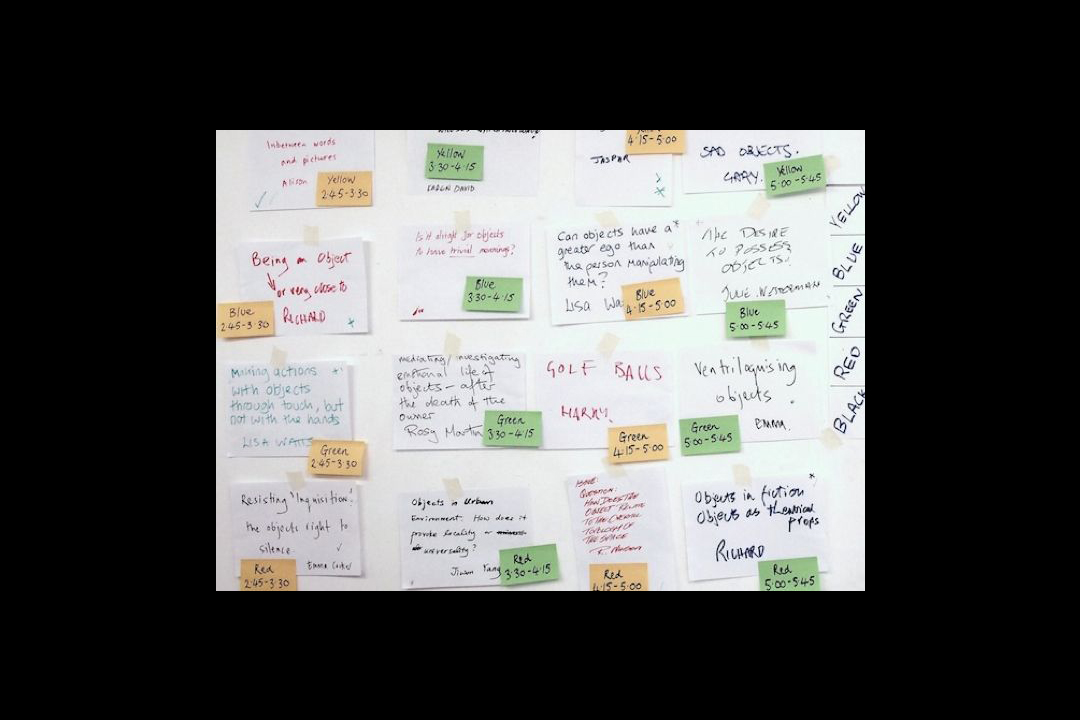 Inbetween words
and pictures
Alison
Yellow
2.45-3.30
Yellow
3.30-4.15
KAREN DAVID
4.15-5.00
JASPAR
SAD OBJECTS.
GARY.
Yellow
5.00-5.45
YELLOW
BLUE
GREEN
RED
BLACK
Being an Object
or very close to
RICHARD
Blue
2.45-3.30
Is it alright for objects
to have trivial meanings?
Blue
3.30-4.15
Can objects have a
greater ego than
the person manipulating
them?
LISA
Blue
4.15-5.00
THE DESIRE
TO POSSESS
OBJECTS!
JULIE WESTERMAN
Blue
5.00-5.45
Making actions
with objects
through touch, but
not with the hands
LISA WATTS
Green
2.45-3.30
mediating/investigating
emotional life of
objects - after
the death of the
owner
Rosy Martin
Green
3.30-4.15
GOLF BALLS
HARRY.
Green
4.15-5.00
Ventriloquising
objects.
EMMA.
Green
5.00-5.45
Resisting 'Inquisition':
the objects right to
silence
Emma
Red
2.45-3.30
Objects in Urban
Environment. How does it
provoke locality or
universality?
Jiwon Yang
Red
3.30-4.15
QUESTION:
HOW DOES THE
OBJECT RELATE
TO THE OVERALL
TOPOLOGY OF
THE SPACE
Red
4.15-5.00
Objects in fiction
Objects as theatrical
props
RICHARD
Red
5.00-5.45